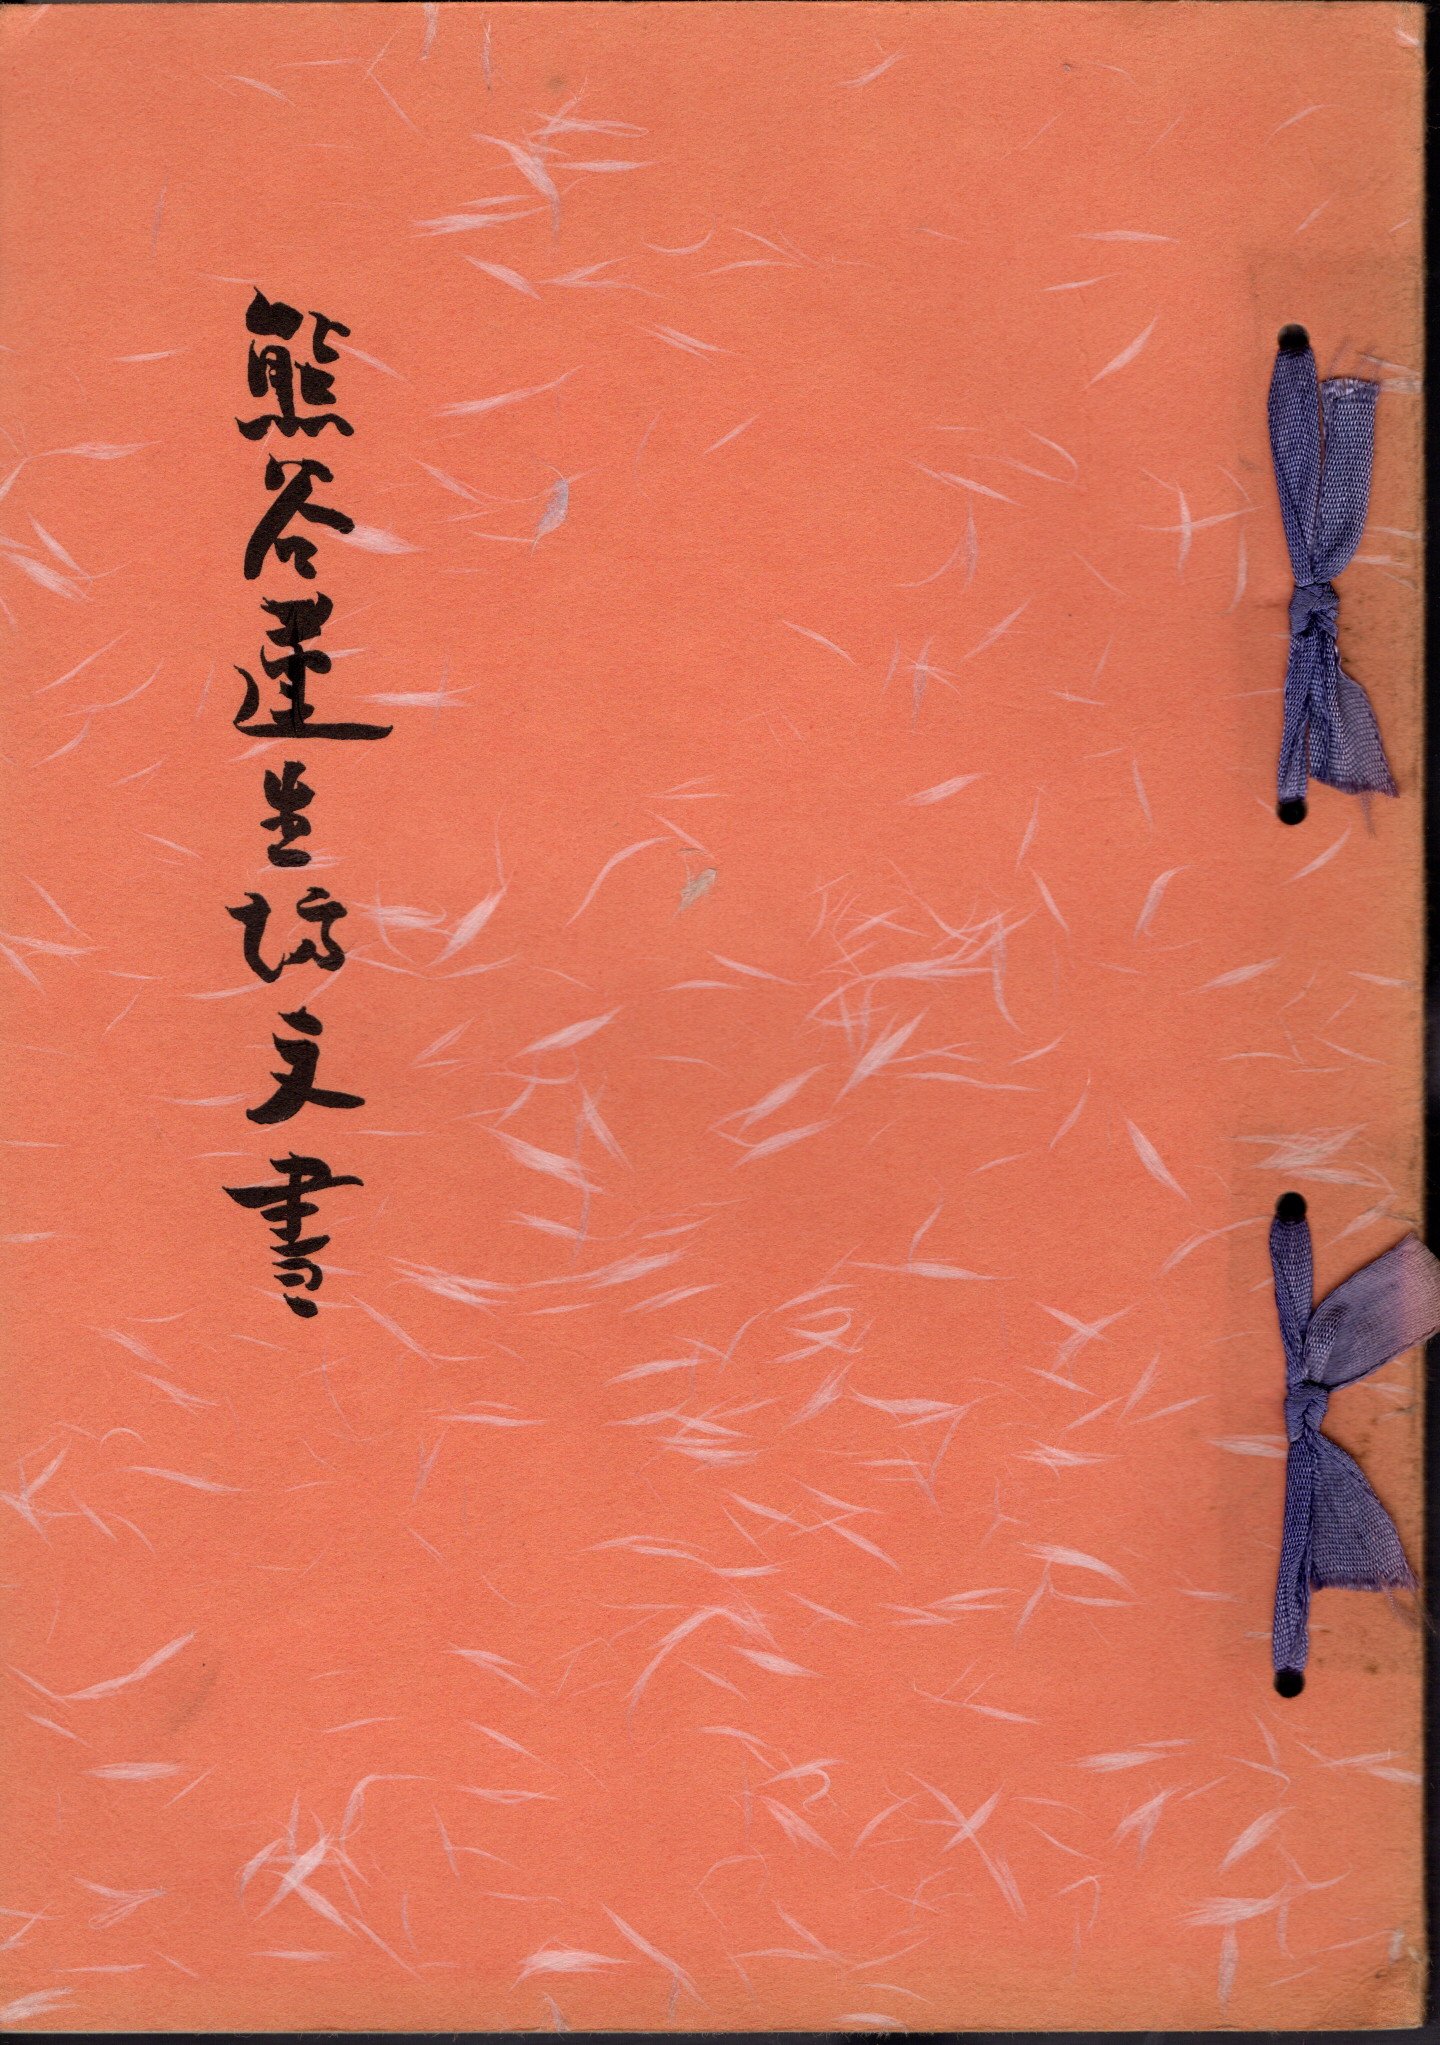 熊谷蓮生坊文書